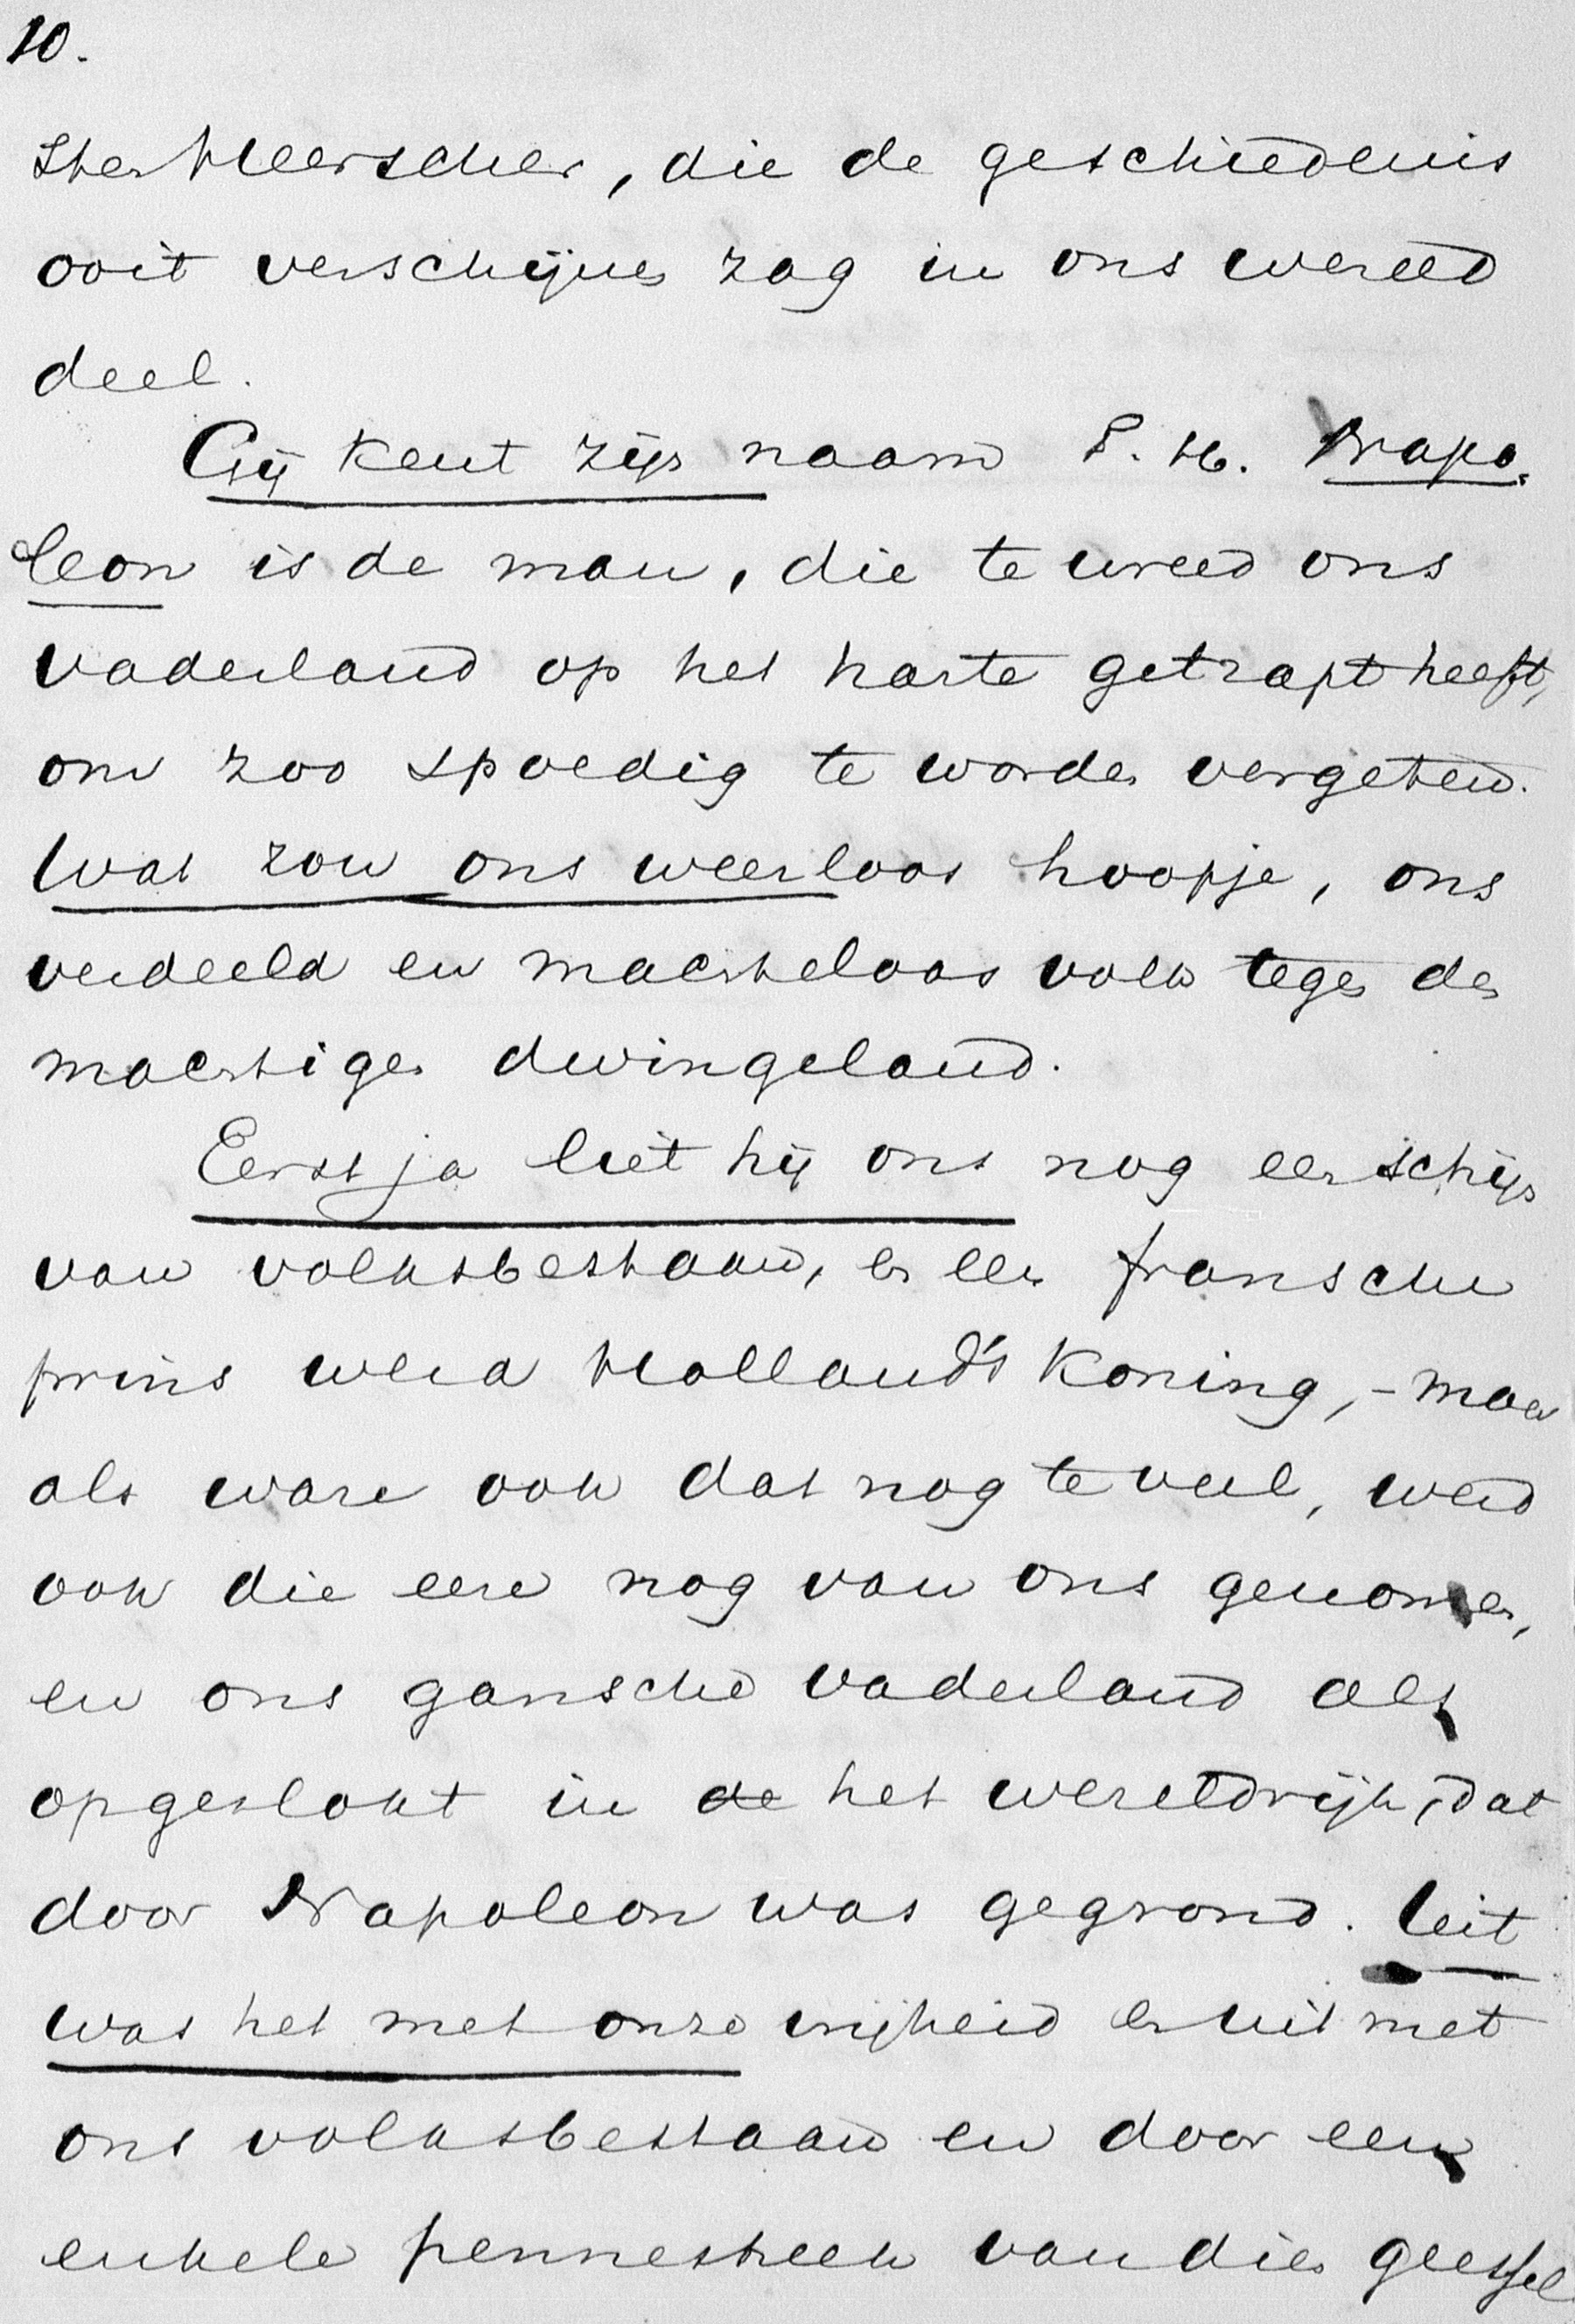 10.
sten Heerscher, die de geschiedenis
ooit verschijnen zag in ons wereld
deel.
Gij kent zijn naam T. H. Napo-
leon is de man, die te wreed ons
vaderland op het harte getrapt heeft,
om zoo spoedig te worden vergeten.
Wat zou ons weerloos hoopje, ons
verdeeld en machteloos volk tegen den
machtigen dwingeland.
Eerst ja liet hij ons nog een schijn
van volksbestaan, en een fransche
prins werd Holland's Koning, - maar
als ware ook dat nog te veel, werd
ook die eere nog van ons genomen,
en ons gansche vaderland als
opgeslokt in de het wereldrijk, dat
door Napoleon was gegrond. Uit
was het met onze vrijheid en uit met
ons volksbestaan en door een
enkele pennestreek van dien geessel